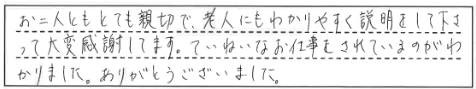 お二人ともとても親切で、老人にもわかりやすく説明をして下さ
って大変感謝してます。ていねいなお仕事をされているのがわ
かりました。ありがとうございました。